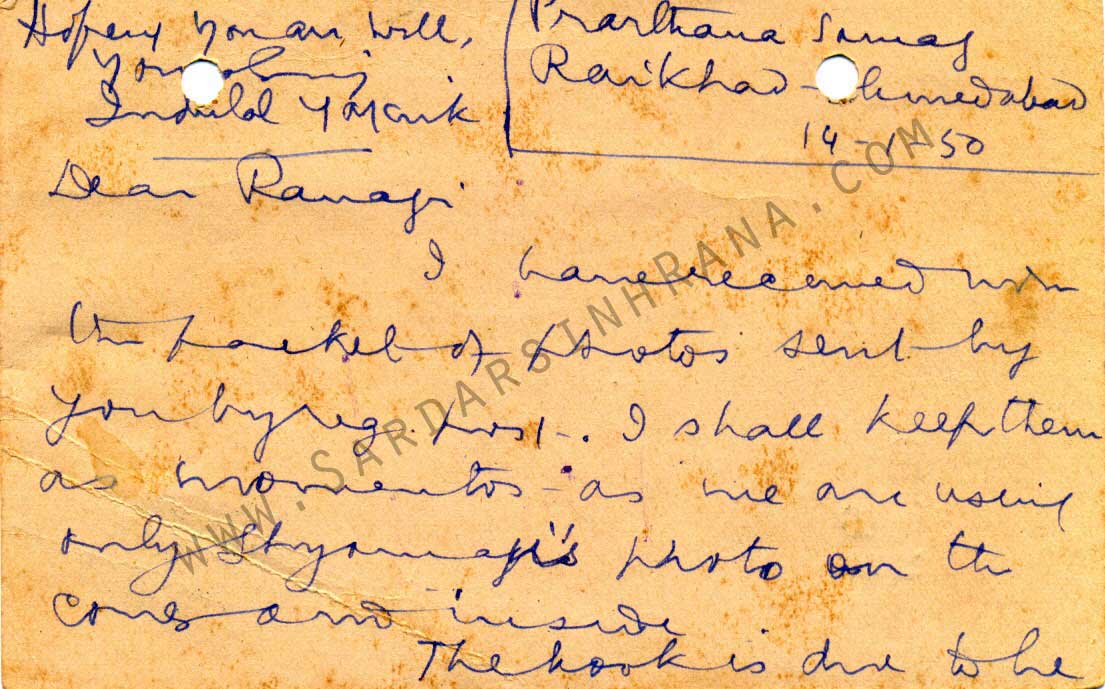 Hoping you are well,
Indulal Yajnik
Prarthana Samaj
Raikhad - Ahmedabad
14-1-50
Dear Ranaji
I have received now
the packet of photos sent by
you by reg. post. I shall keep them
as momentos - as we are using
only Shyamaji's photo on the
cover and inside
The book is due to be
WWW.SARDARSINHRANA.COM